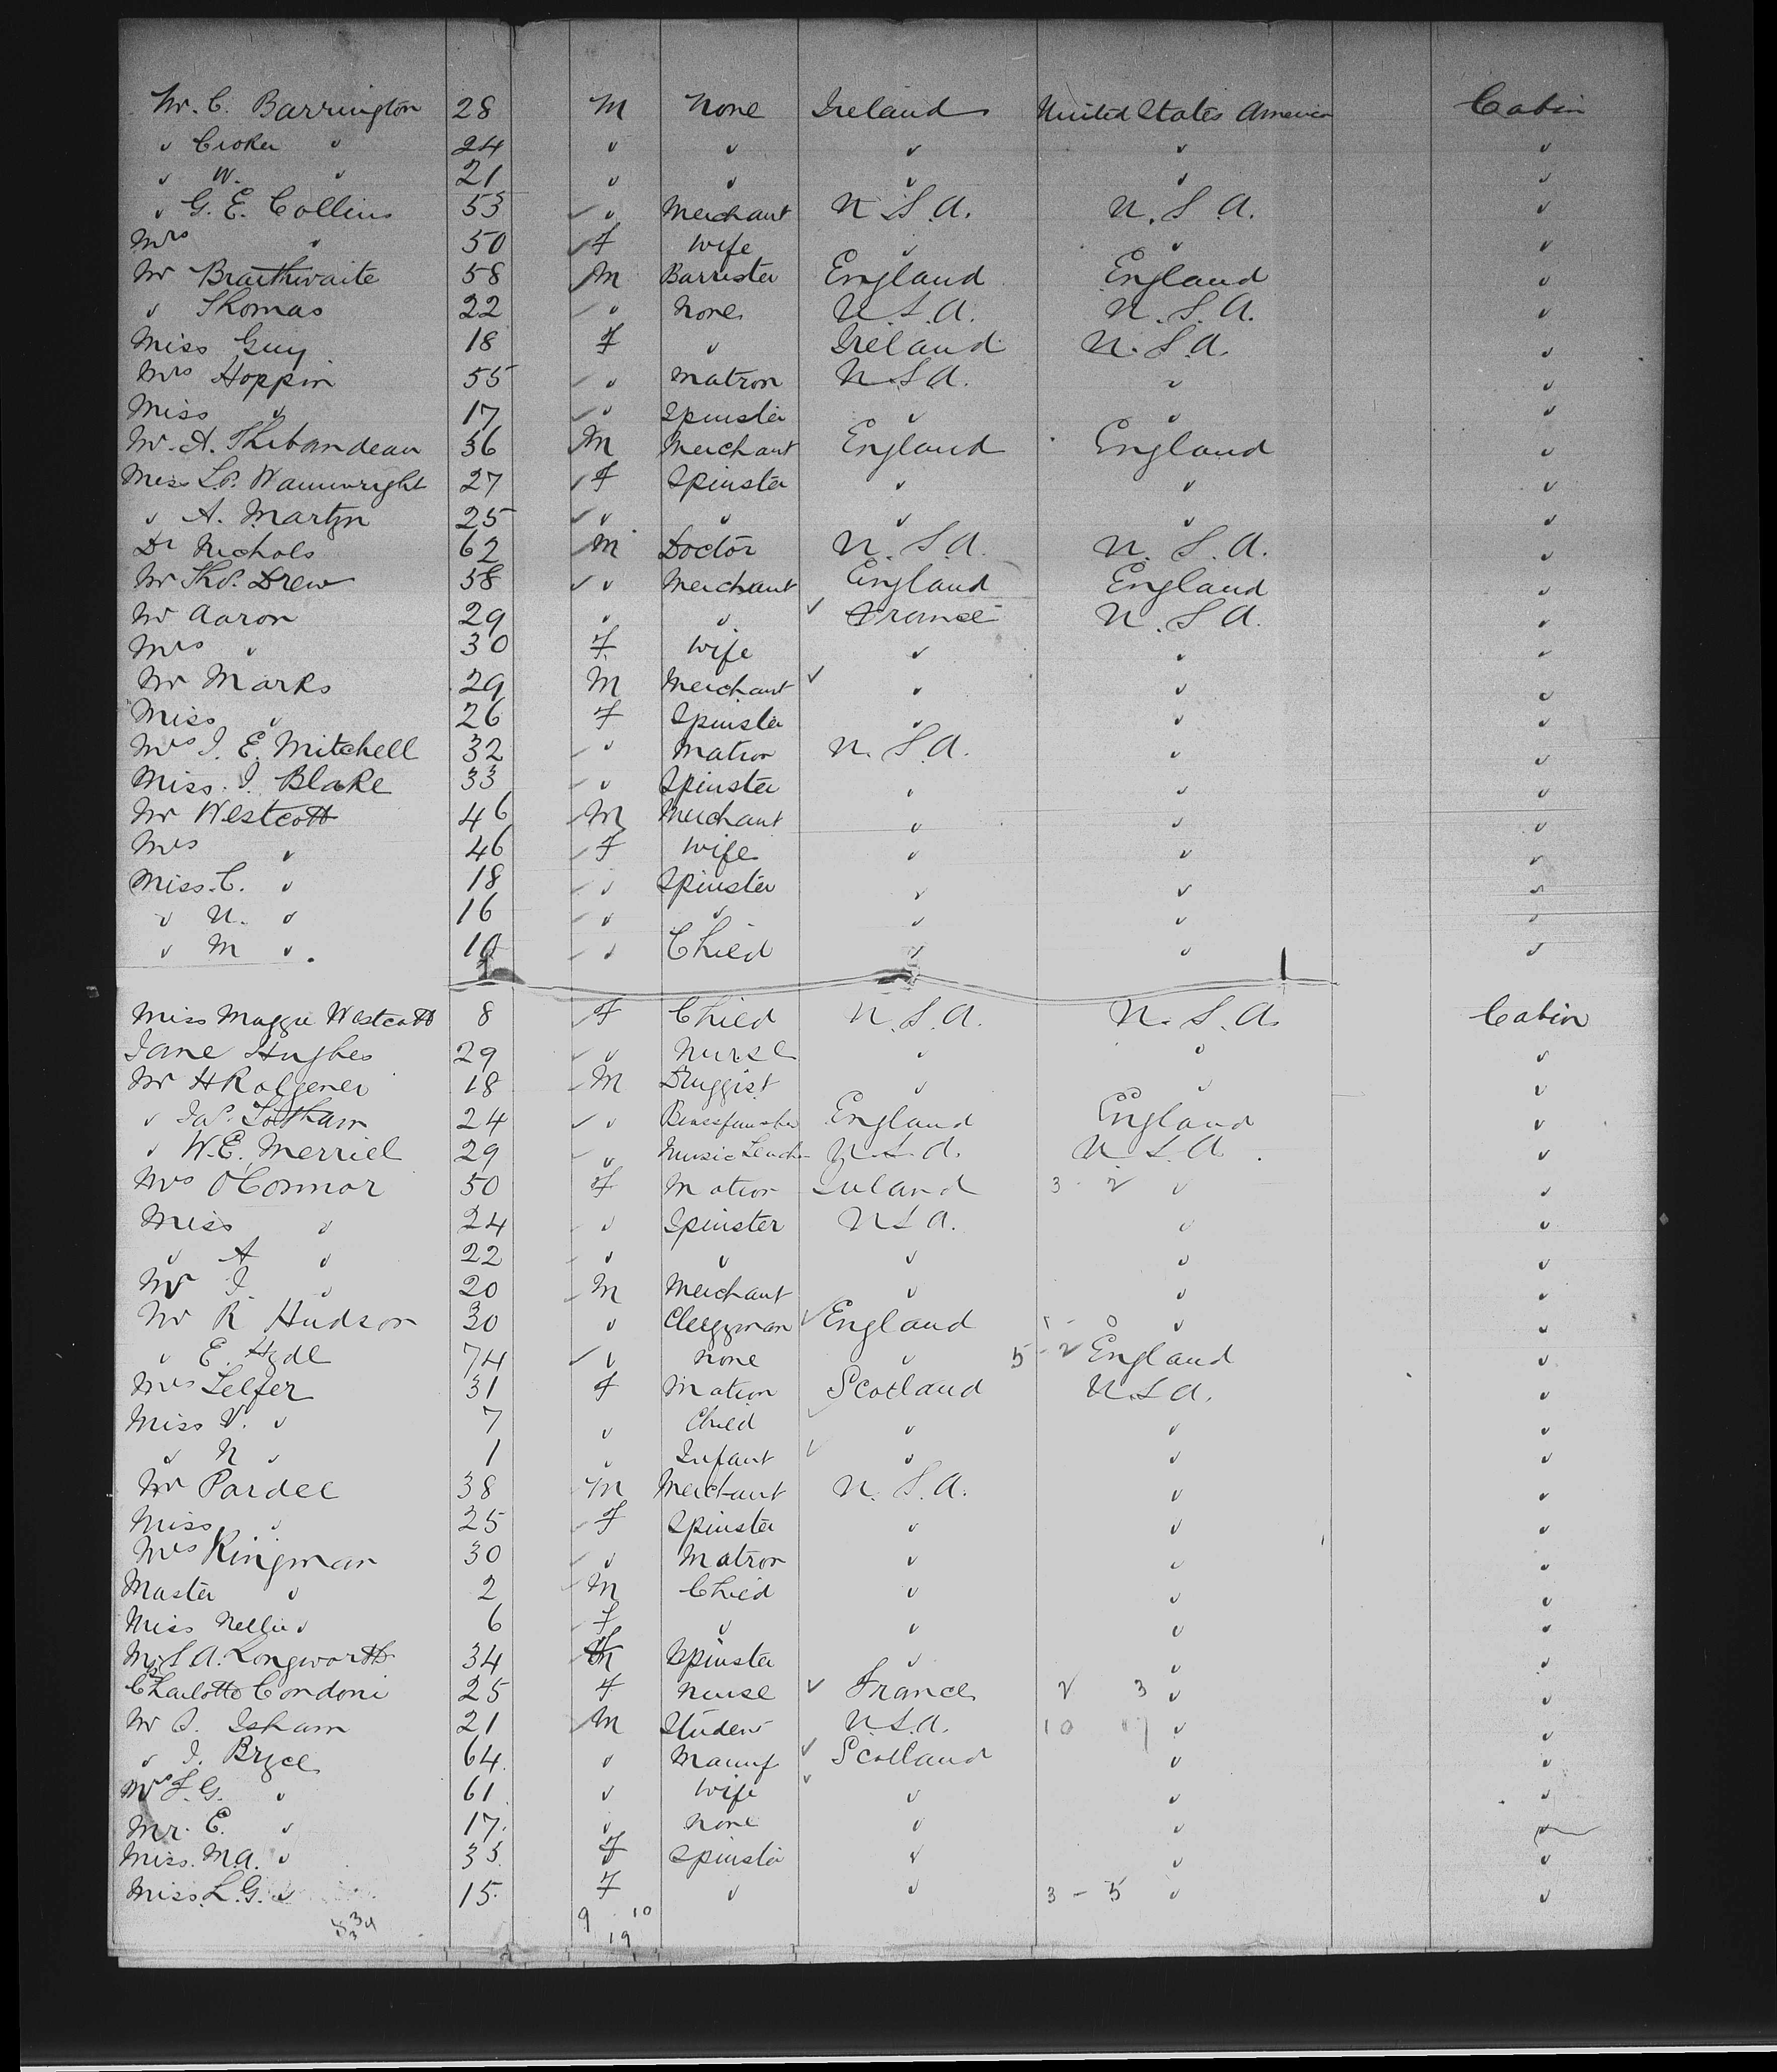 Mr. C. Barrington 28 M None Ireland United States America Cabin
" Croker " 24 " " " " "
" W. " 21 " " " " "
" G. E. Collins 53 " Merchant U.S.A. U.S.A. "
Mrs " 50 F Wife " " "
Mr Braithwaite 58 M Barrister England England "
" Thomas 22 " None U.S.A. U.S.A. "
Miss Guy 18 F " Ireland U.S.A. "
Mrs Hoppin 55 " Matron U.S.A. " "
Miss " 17 " Spinster " " "
Mr. A. Thibandeau 36 M Merchant England England "
Miss L.P. Wainwright 27 F Spinster " " "
" A. Martyn 25 " " " " "
Dr Nichols 62 M Doctor U.S.A. U.S.A. "
Mr Thos. Drew 58 " Merchant England England "
Mr Aaron 29 " " France U.S.A. "
Mrs " 30 F Wife " " "
Mr Marks 29 M Merchant " " "
Miss " 26 F Spinster " " "
Mrs J. E. Mitchell 32 " Matron U.S.A. " "
Miss. J. Blake 33 " Spinster " " "
Mr Westcott 46 M Merchant " " "
Mrs " 46 F Wife " " "
Miss. C. " 18 " Spinster " " "
" N. " 16 " " " " "
" M " 10 " Child " " "
Miss Maggie Westcott 8 F Child U.S.A. U.S.A. Cabin
Jane Hughes 29 " Nurse " " "
Mr H 18 M Druggist " " "
" Jas. Totham 24 " England England "
" W.E. Merriel 29 " Music Teacher U.S.A. U.S.A. "
Mrs O'Connor 50 F Matron Ireland 3 - 2 " "
Miss " 24 " Spinster U.S.A. " "
" A " 22 " " " " "
Mr J. " 20 M Merchant " " "
Mr R Hudson 30 " Clergyman England " "
" E. Hyde 74 " None " 5 - 2 England "
Mrs Telfer 31 F Matron Scotland U.S.A. "
Miss V. " 7 " Child " " "
" N " 1 " Infant " " "
Mr Pardee 38 M Merchant U.S.A. " "
Miss " 25 F Spinster " " "
Mrs Kingman 30 " Matron " " "
Master " 2 M Child " " "
Miss Nellie " 6 F " " " "
S. A. Longworth 34 Spinster " " "
Charlotte Condoni 25 F Nurse France 2 3 " "
Mr S. Isham 21 M Student U.S.A. 10 " "
" J. Bryce 64 " Manuf Scotland " "
Mrs " 61 " Wife " " "
Mr. E. " 17 " None " " "
Miss. M.A. " 33 F Spinster " " "
Miss. L. G. " 15 F " " 3 - 5 " "
9 10
19